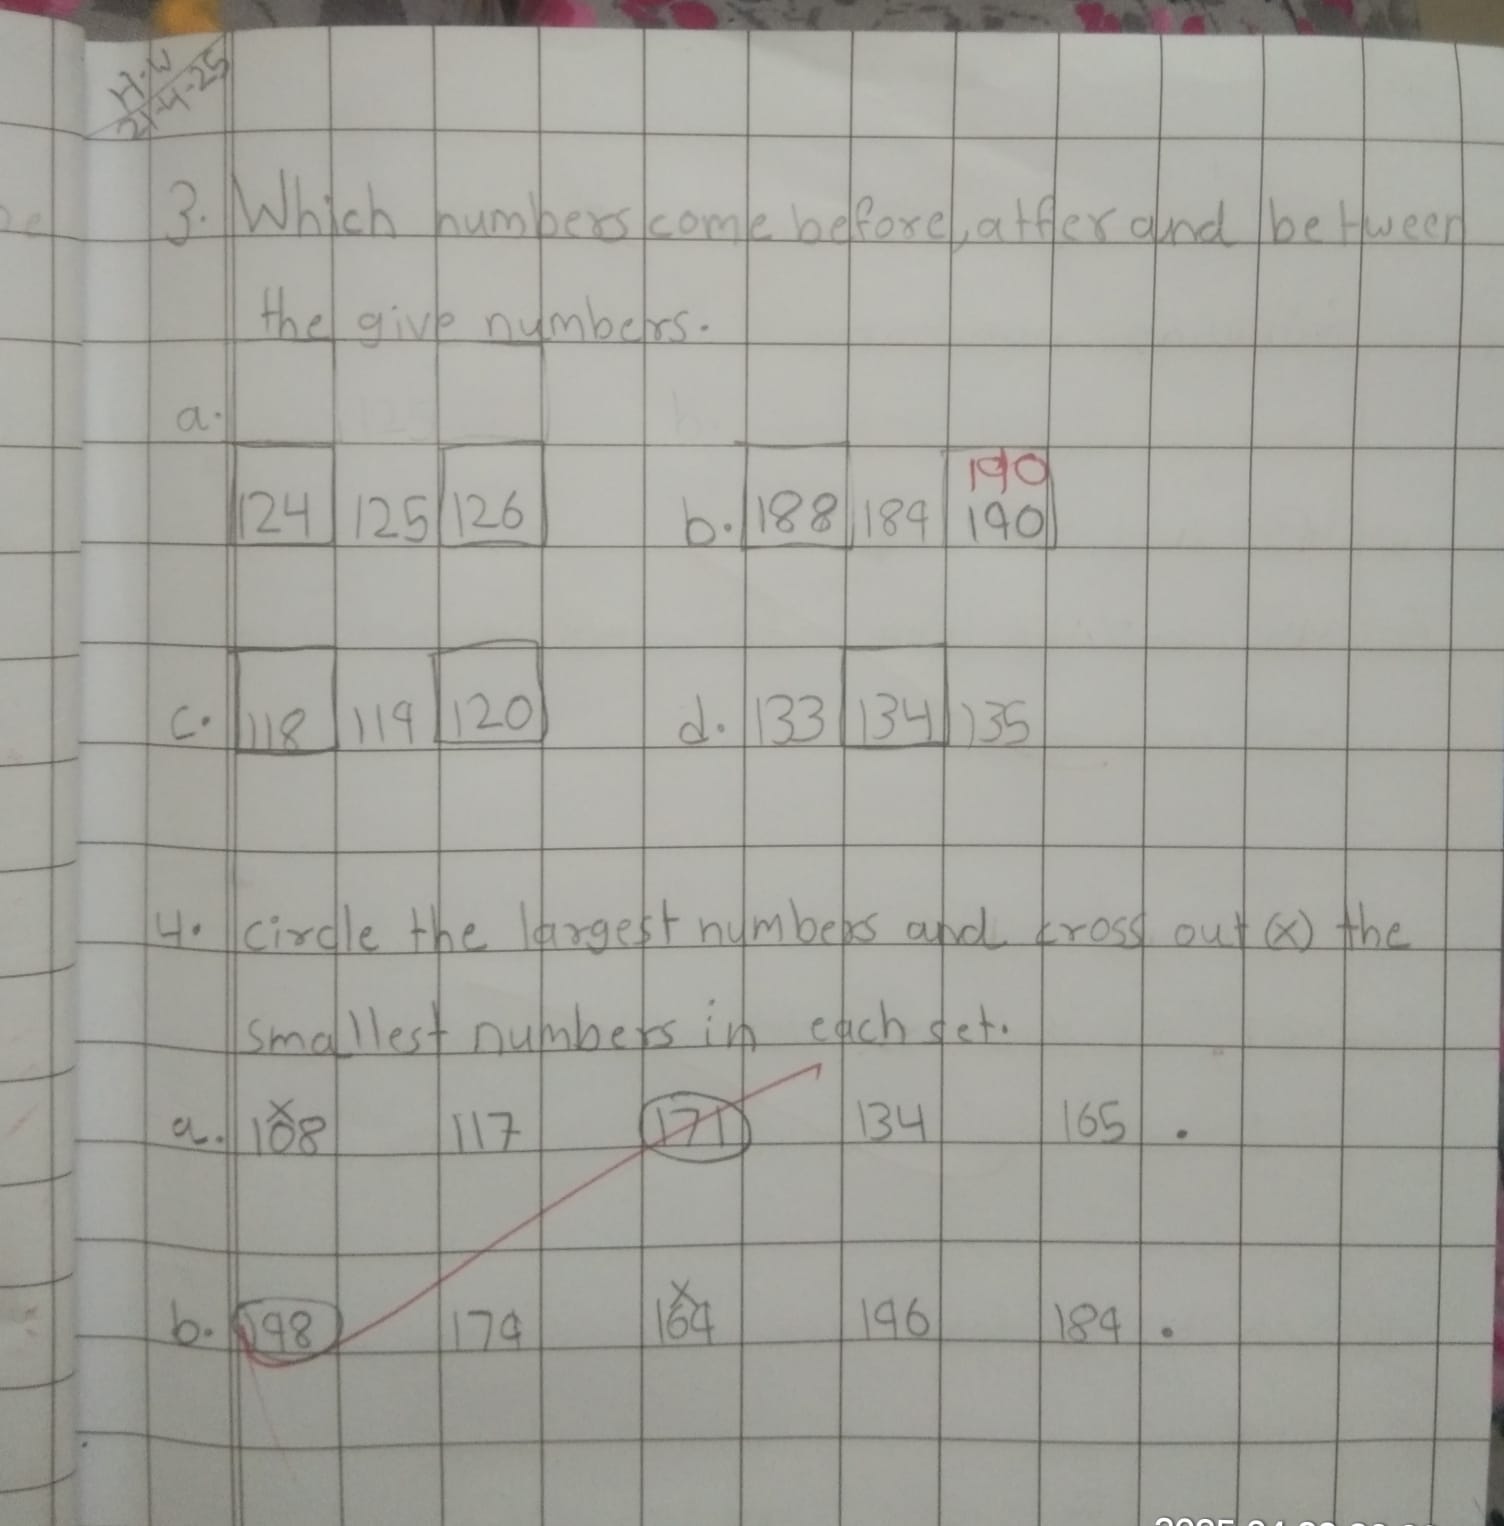 H.W
21-4-25
3. Which numbers come before, atfer and between
the give numbers.
a.
190
124 125 126 b. 188 189 190
c. 118 119 120 d. 133 134 135
4. circle the largest numbers and cross out (x) the
smallest numbers in each set.
a. 108 117 171 134 165 .
b. 198 179 164 196 189 .